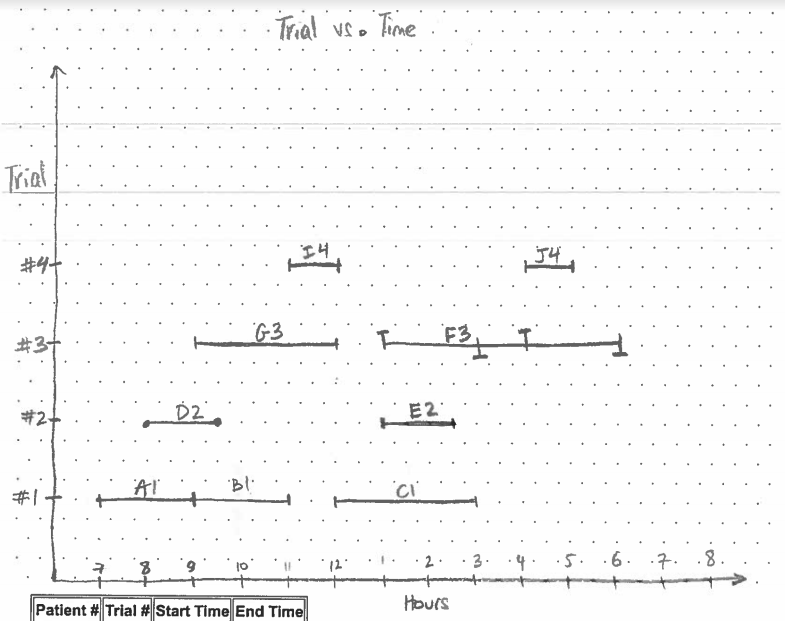 Trial vs. Time
Trial
I4 J4
#4
G3 F3
#3
D2 E2
#2
A1 B1 C1
#1
7 8 9 10 11 12 1 2 3 4 5 6 7 8
Hours
Patient # Trial # Start Time End Time